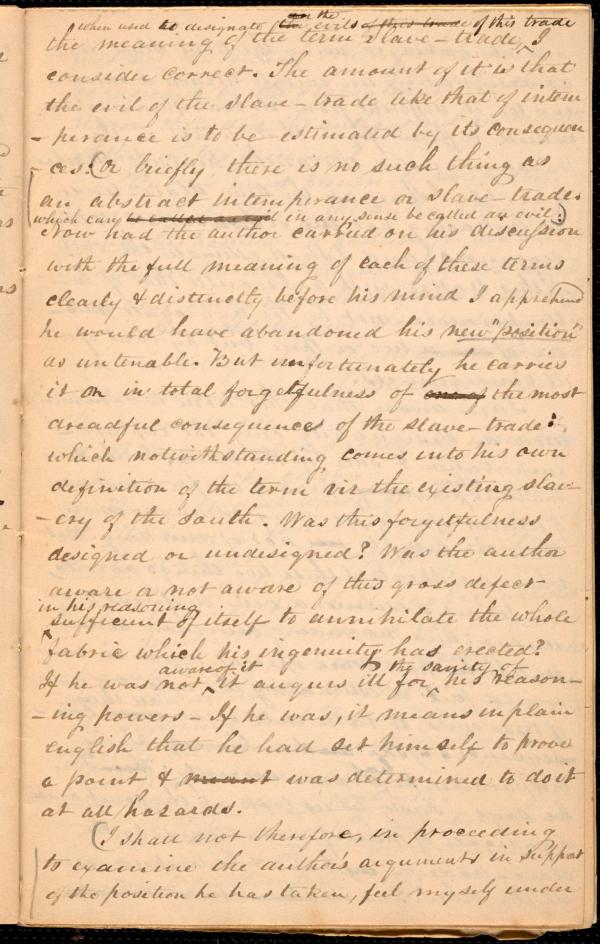 when used to designate the on the evils of this trade of this trade
the meaning of the term slave-trade, I
consider correct. The amount of it is that
the evil of the slave-trade like that of intem
-perance is to be estimated by its consequen
-ces. (Or briefly there is no such thing as
an abstract intemperance or slave-trade.
which can be called an evil in any sense be called an evil.)
Now had the author carried on his discussion
with the full meaning of each of these terms
clearly & distinctly before his mind I apprehend
he would have abandoned his new "position"
as untenable. But unfortunately he carries
it on in total forgetfulness of one of the most
dreadful consequences of the slave-trade:
which notwithstanding comes into his own
definition of the term viz the existing slav-
-ery of the South. Was this forgetfulness
designed or undesigned? Was the author
aware or not aware of this gross defect
in his reasoning
sufficient of itself to annihilate the whole
fabric which his ingenuity has erected?
aware of it the sanity of
If he was not, it augurs ill for his reason-
-ing powers - If he was, it means in plain
english that he had set himself to prove
a point & meant was determined to do it
at all hazards.
(I shall not therefore, in proceeding
to examine the author's arguments in support
of the position he has taken, feel myself under